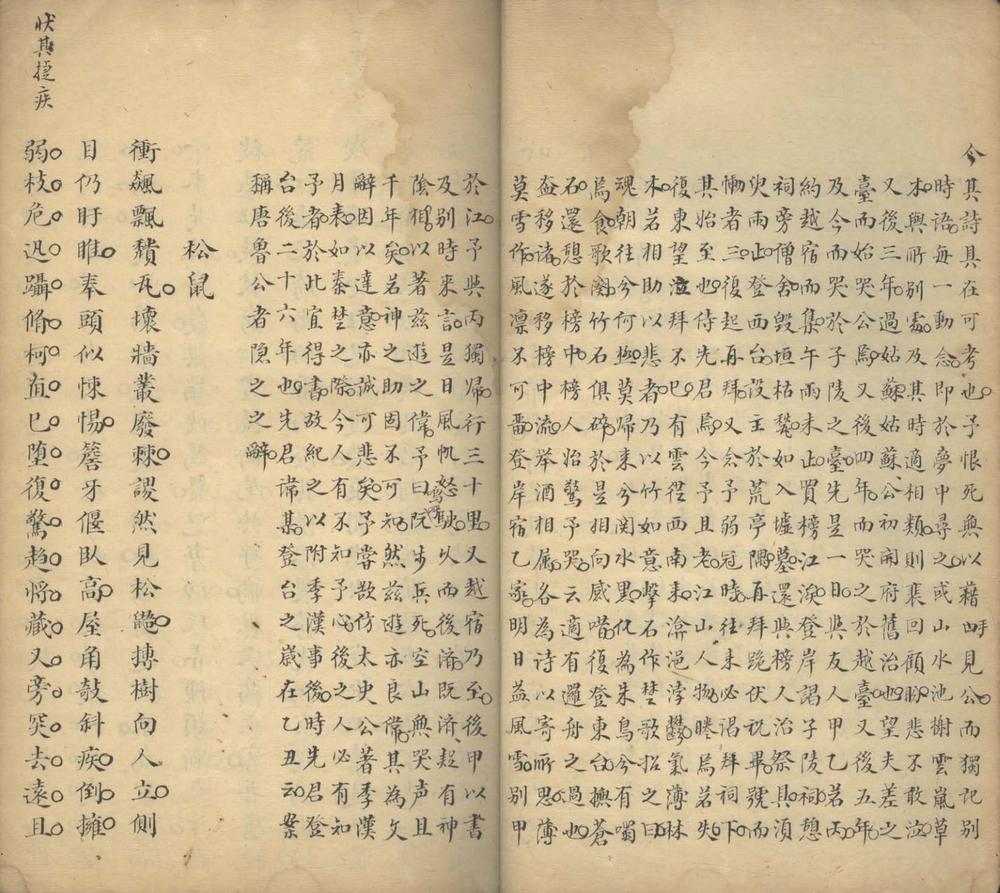 今其詩具在可考也予恨死無以藉手見公而獨記別
時語每一動念即於夢中尋之或山水池榭雲嵐草
木與所別處及其時適相類則裴回顧盼悲不敢泣
又後三年過姑蘇姑蘇公初開府舊治也望夫差之
臺而始哭公焉又後四年而哭之於越臺又後五年
及今而哭於子陵之臺先是一日與友人甲乙若丙
約越宿而集午雨未止買榜江涘登岸謁子陵祠憩
祠旁僧舍毀垣枯甃如入墟墓還與榜人治祭具須
臾雨止登西台設主於荒亭隅再拜跪伏祝畢號而
慟者三復起再拜又念予弱冠時往来必謁拜祠下
其始至也侍先君焉今予且老江山人物睠焉若失
復東望泣拜不已有雲從西南来渰浥浡鬱氣薄林
木若相助以悲者乃以竹如意擊石作楚歌招之曰
魂朝往兮何極莫歸来兮関水黑化為朱鳥兮有噣
焉食歌闋竹石俱碎於是相向感喈復登東台撫蒼
石還憩於榜中榜人始驚予哭云適有邏舟之過也
盍移諸遂移榜中流举酒相属各為诗以寄所思薄
莫雪作風凛不可畱登岸宿乙家明日益風雪別甲
於江予與丙獨歸行三十里又越宿乃至後甲以書
及別時来言是日風帆怒駛以久而後濟既済超有神
陰相以著兹遊之偉予曰阮步兵死空山無哭声且
千年矣若神之助因不可知然兹遊亦良偉其為文
辭因以達意亦誠可悲矣予嘗欲仿太史公著季漢
月表如秦楚之際今人有不知予心後之人必有知
予者於此宜得書故紀之以附季漢事後時先君登
台後二十六年也先君諱某登台之歲在乙丑云案
稱唐魯公者隐之之辭
松鼠
衝飆飄穨瓦壞牆叢廢棘謖然見松鼯摶樹向人立側
目仍盱睢奉頭似悚惕簷牙偃臥高屋角攲斜疾倒擁
狀其捷疾
弱枝危迅躡脩柯直已墮復驚趋将藏又旁突去遠且